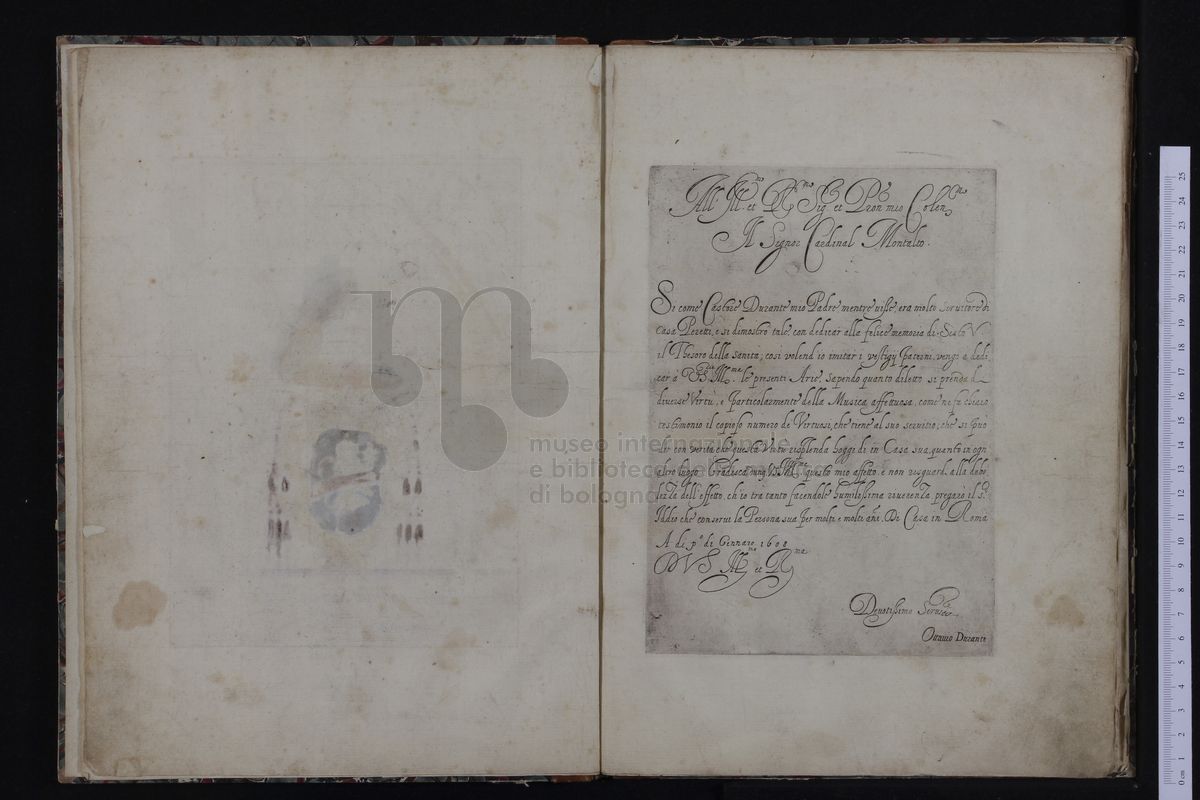 All Ill.mo et R.mo Sig. et Pron mio Colen.mo
Il Signor Cardinal Montalto.
Si come Castore Durante mio Padre mentre uisse, era molto seruitore di
Casa Peretti, e si dimostrò tale con dedicar alla felice memoria di Sisto V
il Thesoro della sanità, così volend'io imitar i vestigij paterni, vengo a dedi
car a V.S. Ill.ma le presenti Arie, sapendo quanto diletto si prenda di
diuerse virtù, e particolarmente della Musica affettuosa, come ne fa chiaro
testimonio il copioso numero de Virtuosi, che tiene al suo seruitio; che si può
dir con verità che questa Virtù risplenda hoggi di in Casa sua, quanto in ogn
altro luogo. Gradisca dunq. V.S. Ill.ma questo mio affetto, e non risguardi alla debo
lezza dell'effetto, ch'io tra tanto facendole humilissima riuerenza pregarò il S.r
Iddio che conserui la Persona sua per molti e molti añi. Di Casa in Roma
A di p.o di Gennaro 1608
D V S Ill.ma et R.ma
Deuotissimo Seruitore
Ottauio Durante
museo internazionale
e biblioteca della
di bologna
0 cm 1 2 3 4 5 6 7 8 9 10 11 12 13 14 15 16 17 18 19 20 21 22 23 24 25